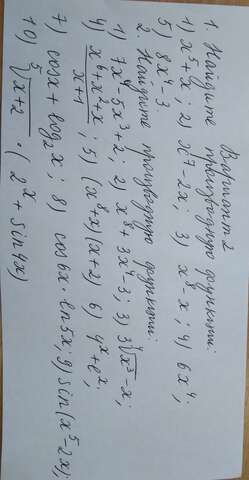 Вариант 2
1. Найдите производную функции:
1) x⁵+x; 2) x⁷-2x; 3) x⁸x; 4) 6x⁴;
5) 8x⁴-3
2. Найдите производную функции:
1) 7x⁴-5x³+2; 2) x⁸+3x⁴-3; 3) 3∜x³-x;
4) (x⁶+x²+x)/(x+1); 5) (x⁸+x)(x+2) 6) 4ˣ+eˣ;
7) cosx + log₂x; 8) cos6x·ln5x; 9) sin(x⁵-2x);
10) ⁵√(x+2) · (2ˣ + sin4x)